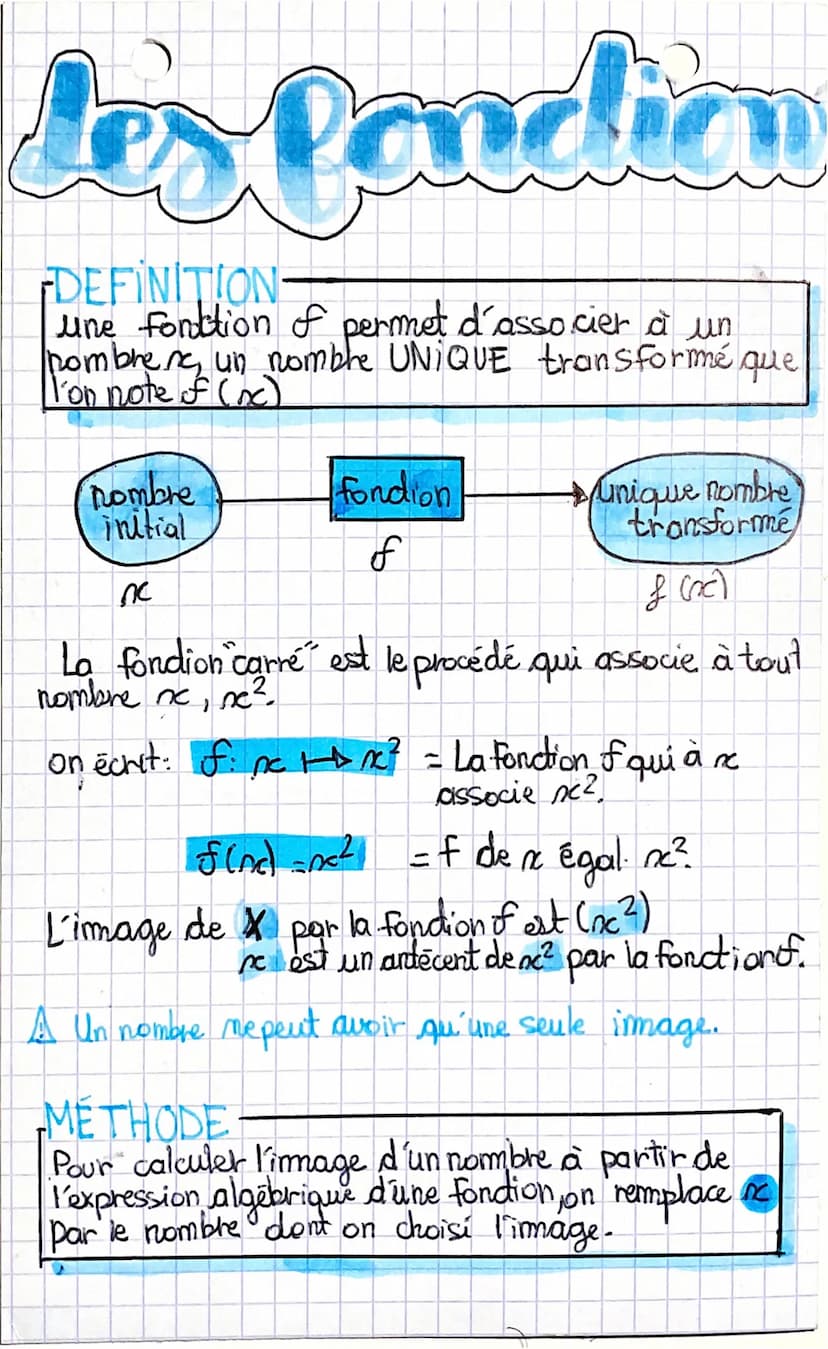 Les fonction
DEFINITION
une fonction f permet d'associer à un
nombre x, un nombre UNIQUE transformé que
l'on note f(x)
nombre
initial
x
fonction
f
unique nombre
transformé
f(x)
La fonction "carré" est le procédé qui associe à tout
nombre x, x².
on écrit: f: x ↦ x² = La fonction f qui à x
associe x².
f(x) = x² = f de x égal x².
L'image de X par la fonction f est (x²)
x est un antécent de x² par la fonction f.
⚠ Un nombre ne peut avoir qu'une seule image.
MÉTHODE
Pour calculer l'image d'un nombre à partir de
l'expression algébrique d'une fonction, on remplace x
par le nombre dont on choisi l'image.